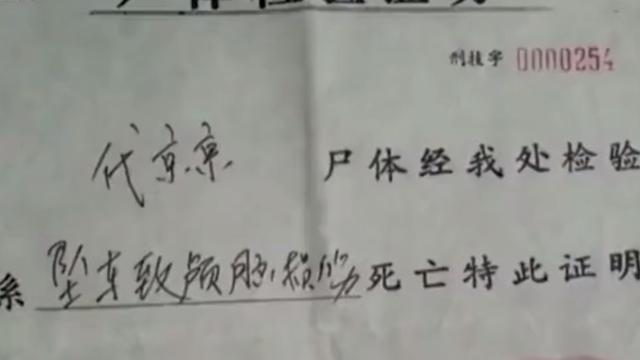 尸体检验证明
刑技字 0000254
代京京 尸体经我处检验
系坠车致颅脑损伤死亡特此证明